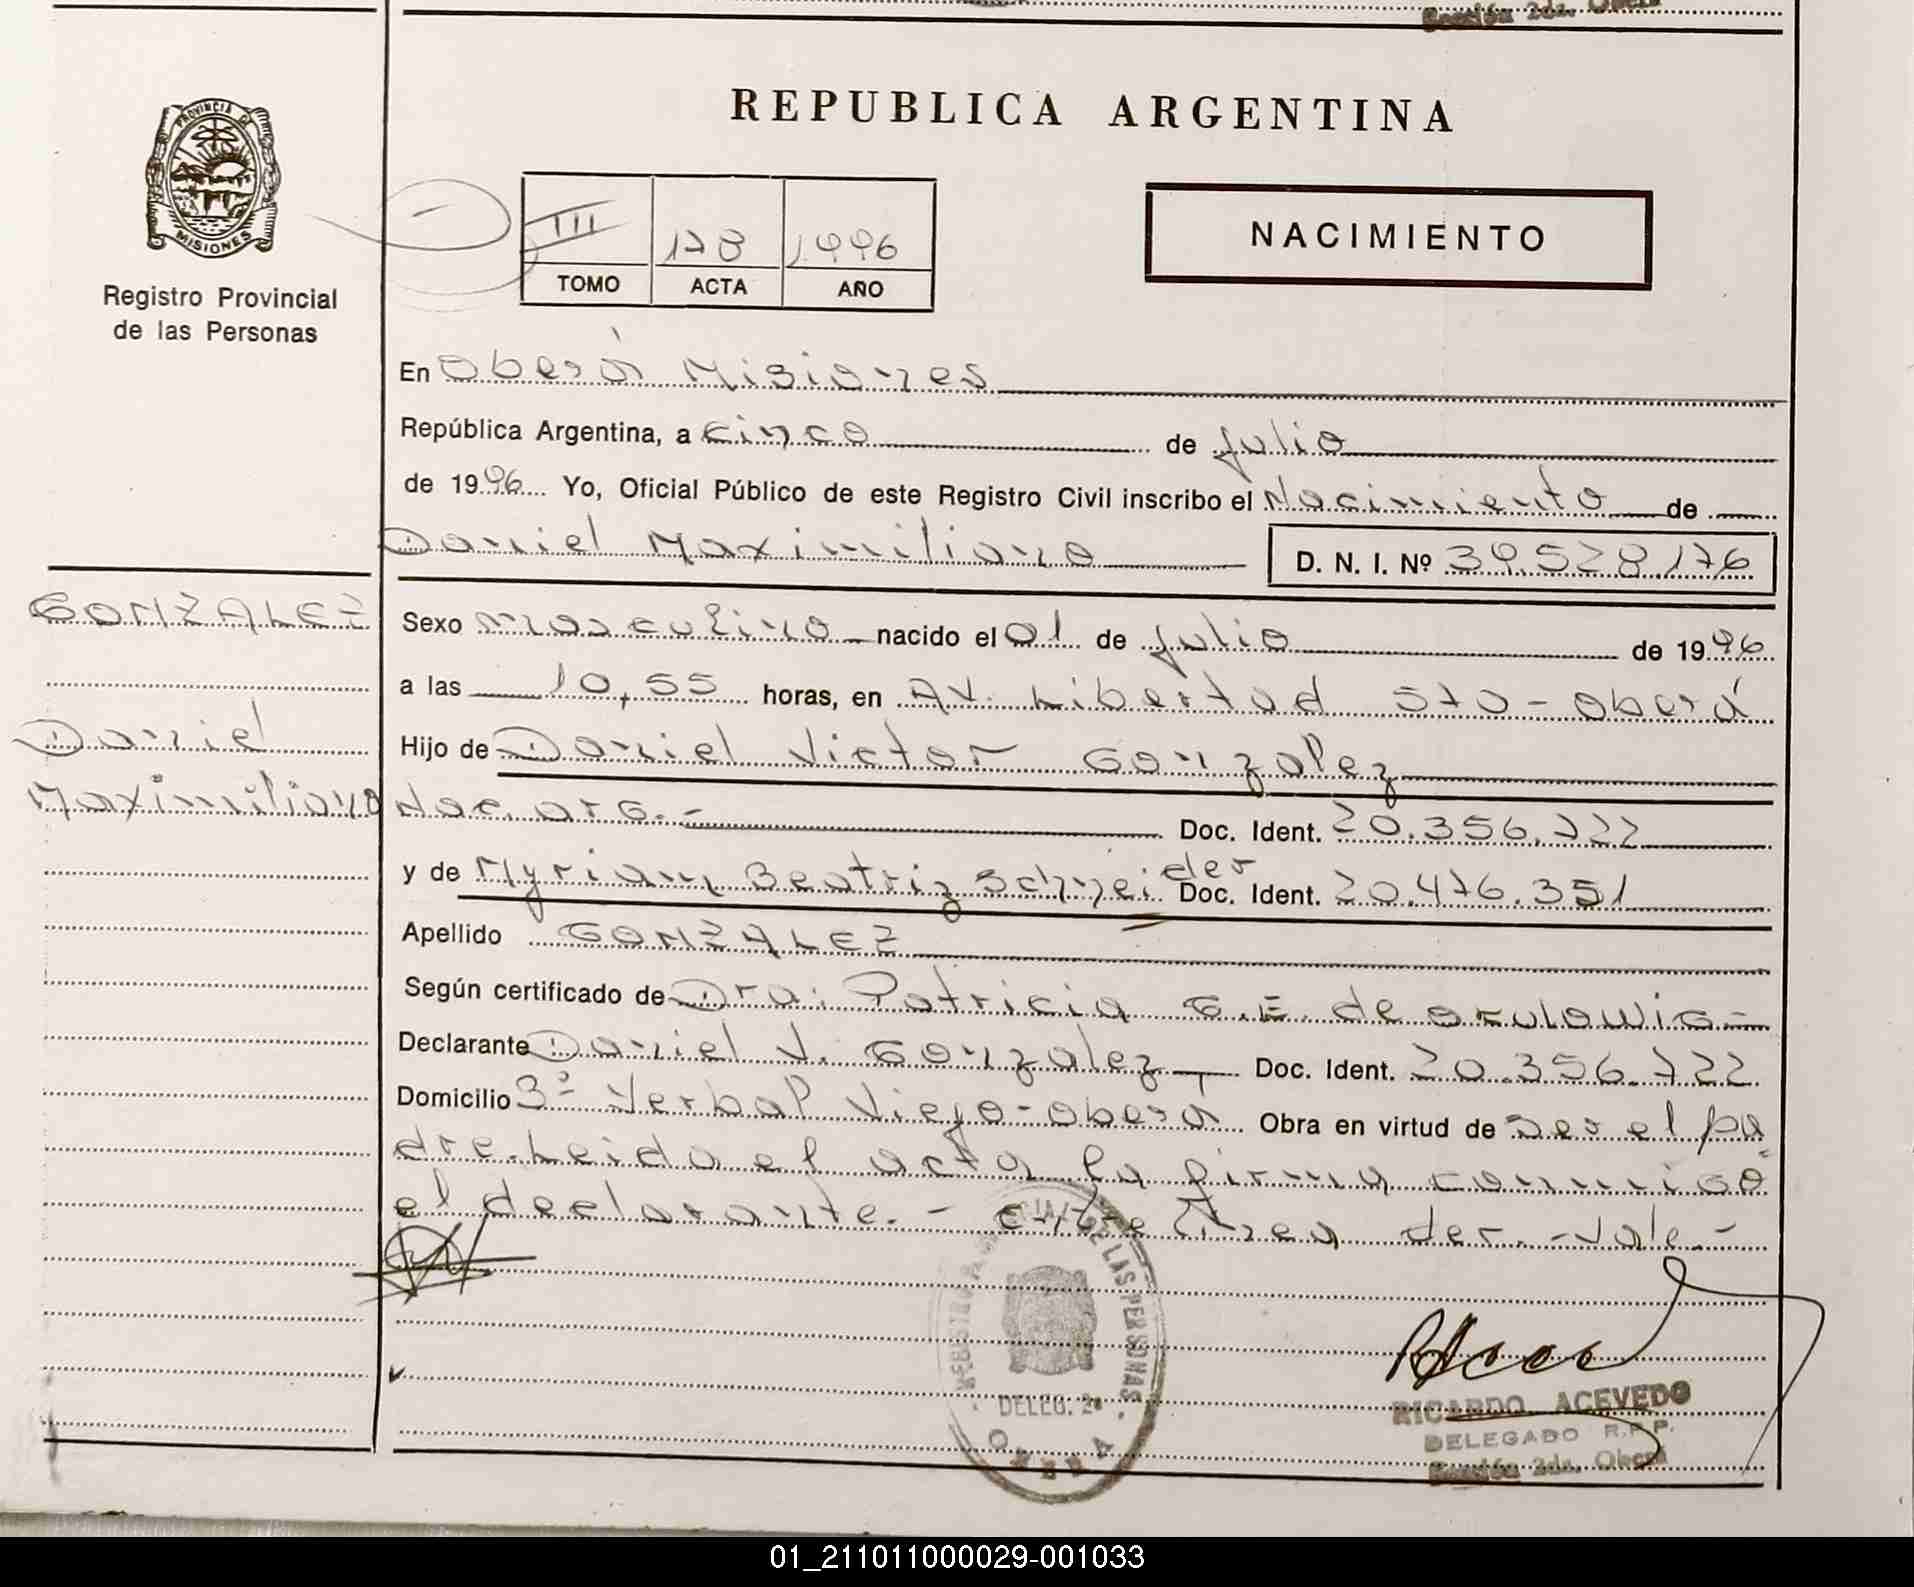 Sección 2da. Oberá
REPUBLICA ARGENTINA
PROVINCIA DE
MISIONES
Registro Provincial
de las Personas
III 178 1996
TOMO ACTA AÑO
NACIMIENTO
En Oberá Misiones
República Argentina, a cinco de julio
de 1996 Yo, Oficial Público de este Registro Civil inscribo el Nacimiento de
Daniel Maximiliano D. N. I. Nº 39.528.176
GONZALEZ
Daniel
Maximiliano
Sexo masculino nacido el 01 de julio de 1996
a las 10,55 horas, en AV. Libertad 570 - Oberá
Hijo de Daniel Victor Gonzalez
Nac. arG. - Doc. Ident. 20.356.722
y de Myriam Beatriz Schneider Doc. Ident. 20.476.351
Apellido GONZALEZ
Según certificado de Dra: Patricia G.E. de
Declarante Daniel V. Gonzalez Doc. Ident. 20.356.722
Domicilio 3º Yerbal Viejo - Oberá Obra en virtud de ser el pa
dre. Leida el acta la firma conmigo
el declarante. - der. - Vale. -
REGISTRO DE LAS PERSONAS
DELEG. 2ª
OBERA
RICARDO ACEVEDO
DELEGADO R.P.P.
Sección 2da. Oberá
01_211011000029-001033